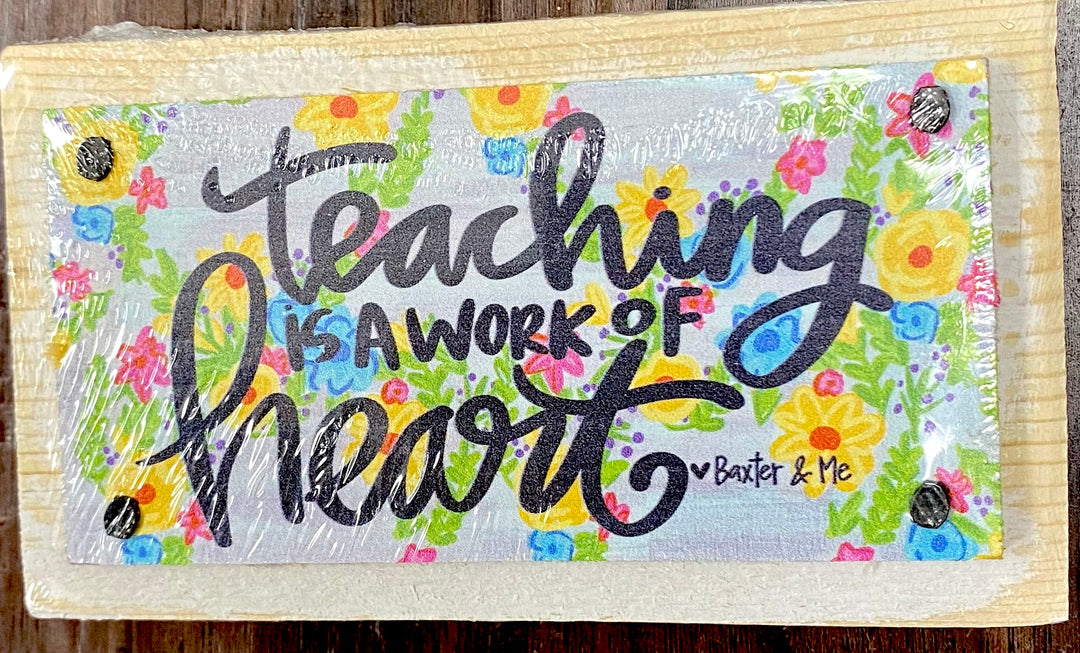 teaching
IS A WORK OF
heart
♥Baxter & Me